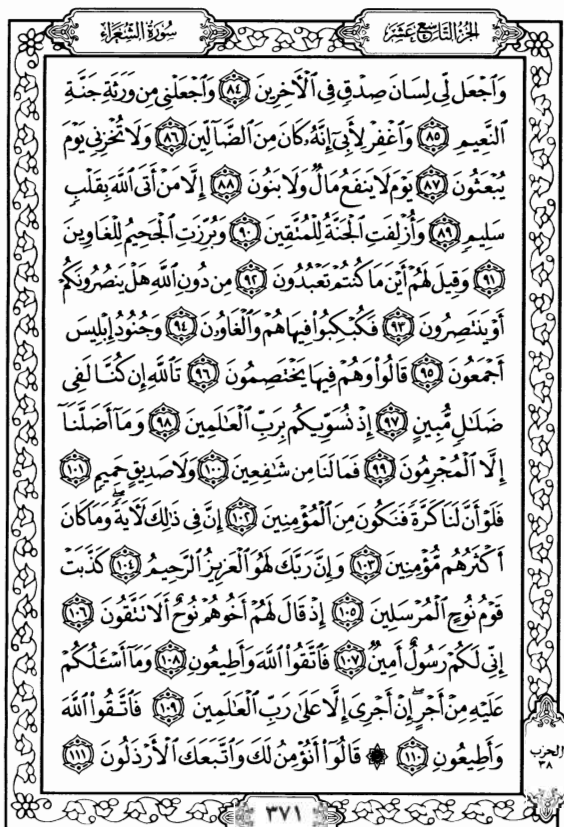 الجزء التاسع عشر
سورة الشعراء
وَٱجْعَل لِّي لِسَانَ صِدْقٍ فِي ٱلْآخِرِينَ ٨٤ وَٱجْعَلْنِي مِن وَرَثَةِ جَنَّةِ
ٱلنَّعِيمِ ٨٥ وَٱغْفِرْ لِأَبِيٓ إِنَّهُۥ كَانَ مِنَ ٱلضَّآلِّينَ ٨٦ وَلَا تُخْزِنِي يَوْمَ
يُبْعَثُونَ ٨٧ يَوْمَ لَا يَنفَعُ مَالٌ وَلَا بَنُونَ ٨٨ إِلَّا مَنْ أَتَى ٱللَّهَ بِقَلْبٍ
سَلِيمٍ ٨٩ وَأُزْلِفَتِ ٱلْجَنَّةُ لِلْمُتَّقِينَ ٩٠ وَبُرِّزَتِ ٱلْجَحِيمُ لِلْغَاوِينَ
٩١ وَقِيلَ لَهُمْ أَيْنَ مَا كُنتُمْ تَعْبُدُونَ ٩٢ مِن دُونِ ٱللَّهِ هَلْ يَنصُرُونَكُمْ
أَوْ يَنتَصِرُونَ ٩٣ فَكُبْكِبُوا۟ فِيهَا هُمْ وَٱلْغَاوُۥنَ ٩٤ وَجُنُودُ إِبْلِيسَ
أَجْمَعُونَ ٩٥ قَالُوا۟ وَهُمْ فِيهَا يَخْتَصِمُونَ ٩٦ تَٱللَّهِ إِن كُنَّا لَفِي
ضَلَٰلٍ مُّبِينٍ ٩٧ إِذْ نُسَوِّيكُم بِرَبِّ ٱلْعَٰلَمِينَ ٩٨ وَمَآ أَضَلَّنَآ
إِلَّا ٱلْمُجْرِمُونَ ٩٩ فَمَا لَنَا مِن شَٰفِعِينَ ١٠٠ وَلَا صَدِيقٍ حَمِيمٍ ١٠١
فَلَوْ أَنَّ لَنَا كَرَّةً فَنَكُونَ مِنَ ٱلْمُؤْمِنِينَ ١٠٢ إِنَّ فِي ذَٰلِكَ لَآيَةً ۖ وَمَا كَانَ
أَكْثَرُهُم مُّؤْمِنِينَ ١٠٣ وَإِنَّ رَبَّكَ لَهُوَ ٱلْعَزِيزُ ٱلرَّحِيمُ ١٠٤ كَذَّبَتْ
قَوْمُ نُوحٍ ٱلْمُرْسَلِينَ ١٠٥ إِذْ قَالَ لَهُمْ أَخُوهُمْ نُوحٌ أَلَا تَتَّقُونَ ١٠٦
إِنِّي لَكُمْ رَسُولٌ أَمِينٌ ١٠٧ فَٱتَّقُوا۟ ٱللَّهَ وَأَطِيعُونِ ١٠٨ وَمَآ أَسْـَٔلُكُمْ
عَلَيْهِ مِنْ أَجْرٍ ۖ إِنْ أَجْرِيَ إِلَّا عَلَىٰ رَبِّ ٱلْعَٰلَمِينَ ١٠٩ فَٱتَّقُوا۟ ٱللَّهَ
وَأَطِيعُونِ ١١٠ ۞ قَالُوٓا۟ أَنُؤْمِنُ لَكَ وَٱتَّبَعَكَ ٱلْأَرْذَلُونَ ١١١
الحزب
٣٨
٣٧١